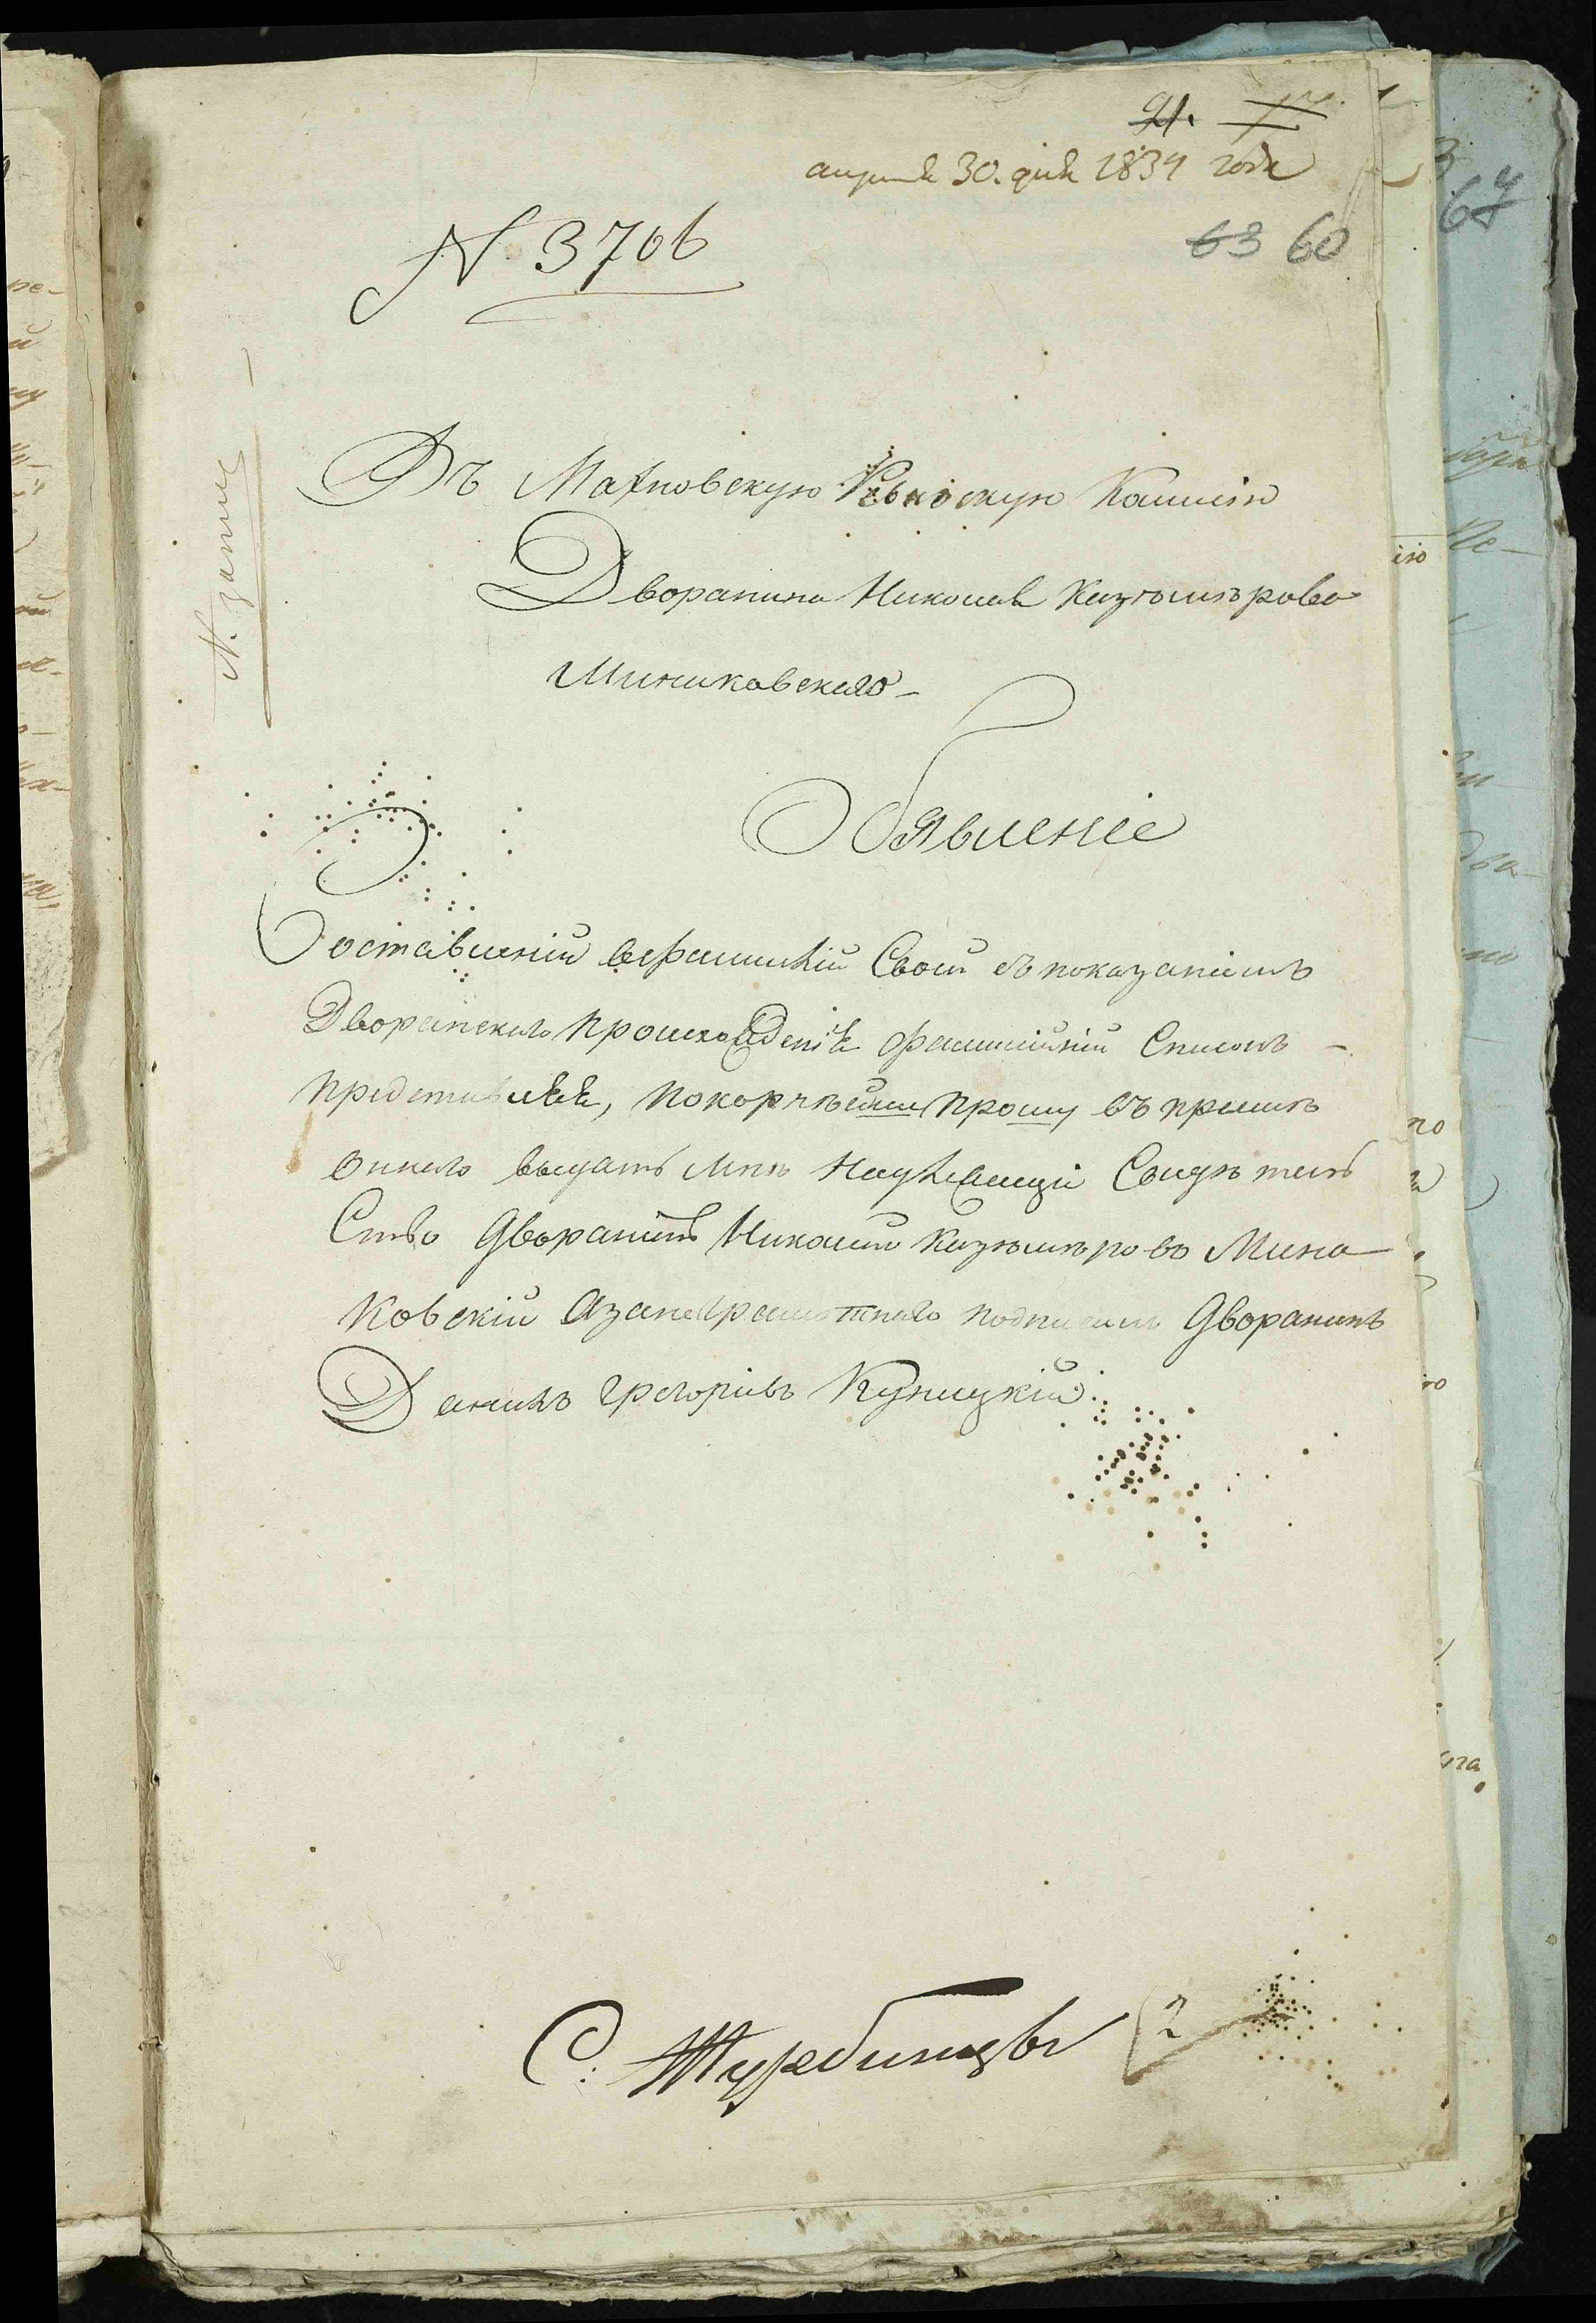 апреля 30. дня 1834 года
63 60
N. 3706
Въ Махновскую Ревизскую Комисію
Дворанина Николая Казъмѣрова
Минаковскаго
Обявленіе
Составленій офамилій Своей съ показаніемъ
Дворанскаго происхожденія фамилійній Списокъ
представляя, покорнѣйше прошу въ пріемѣ
оннаго выдать мнѣ Надлежащи Свидѣтель
Ство Дворанинъ Николай Казъмѣровъ Мина
ковскій Азанеграмотнаго подписалъ Дворанинъ
Данилъ Грегоріевъ Куницкій
С: Журбинцы
2